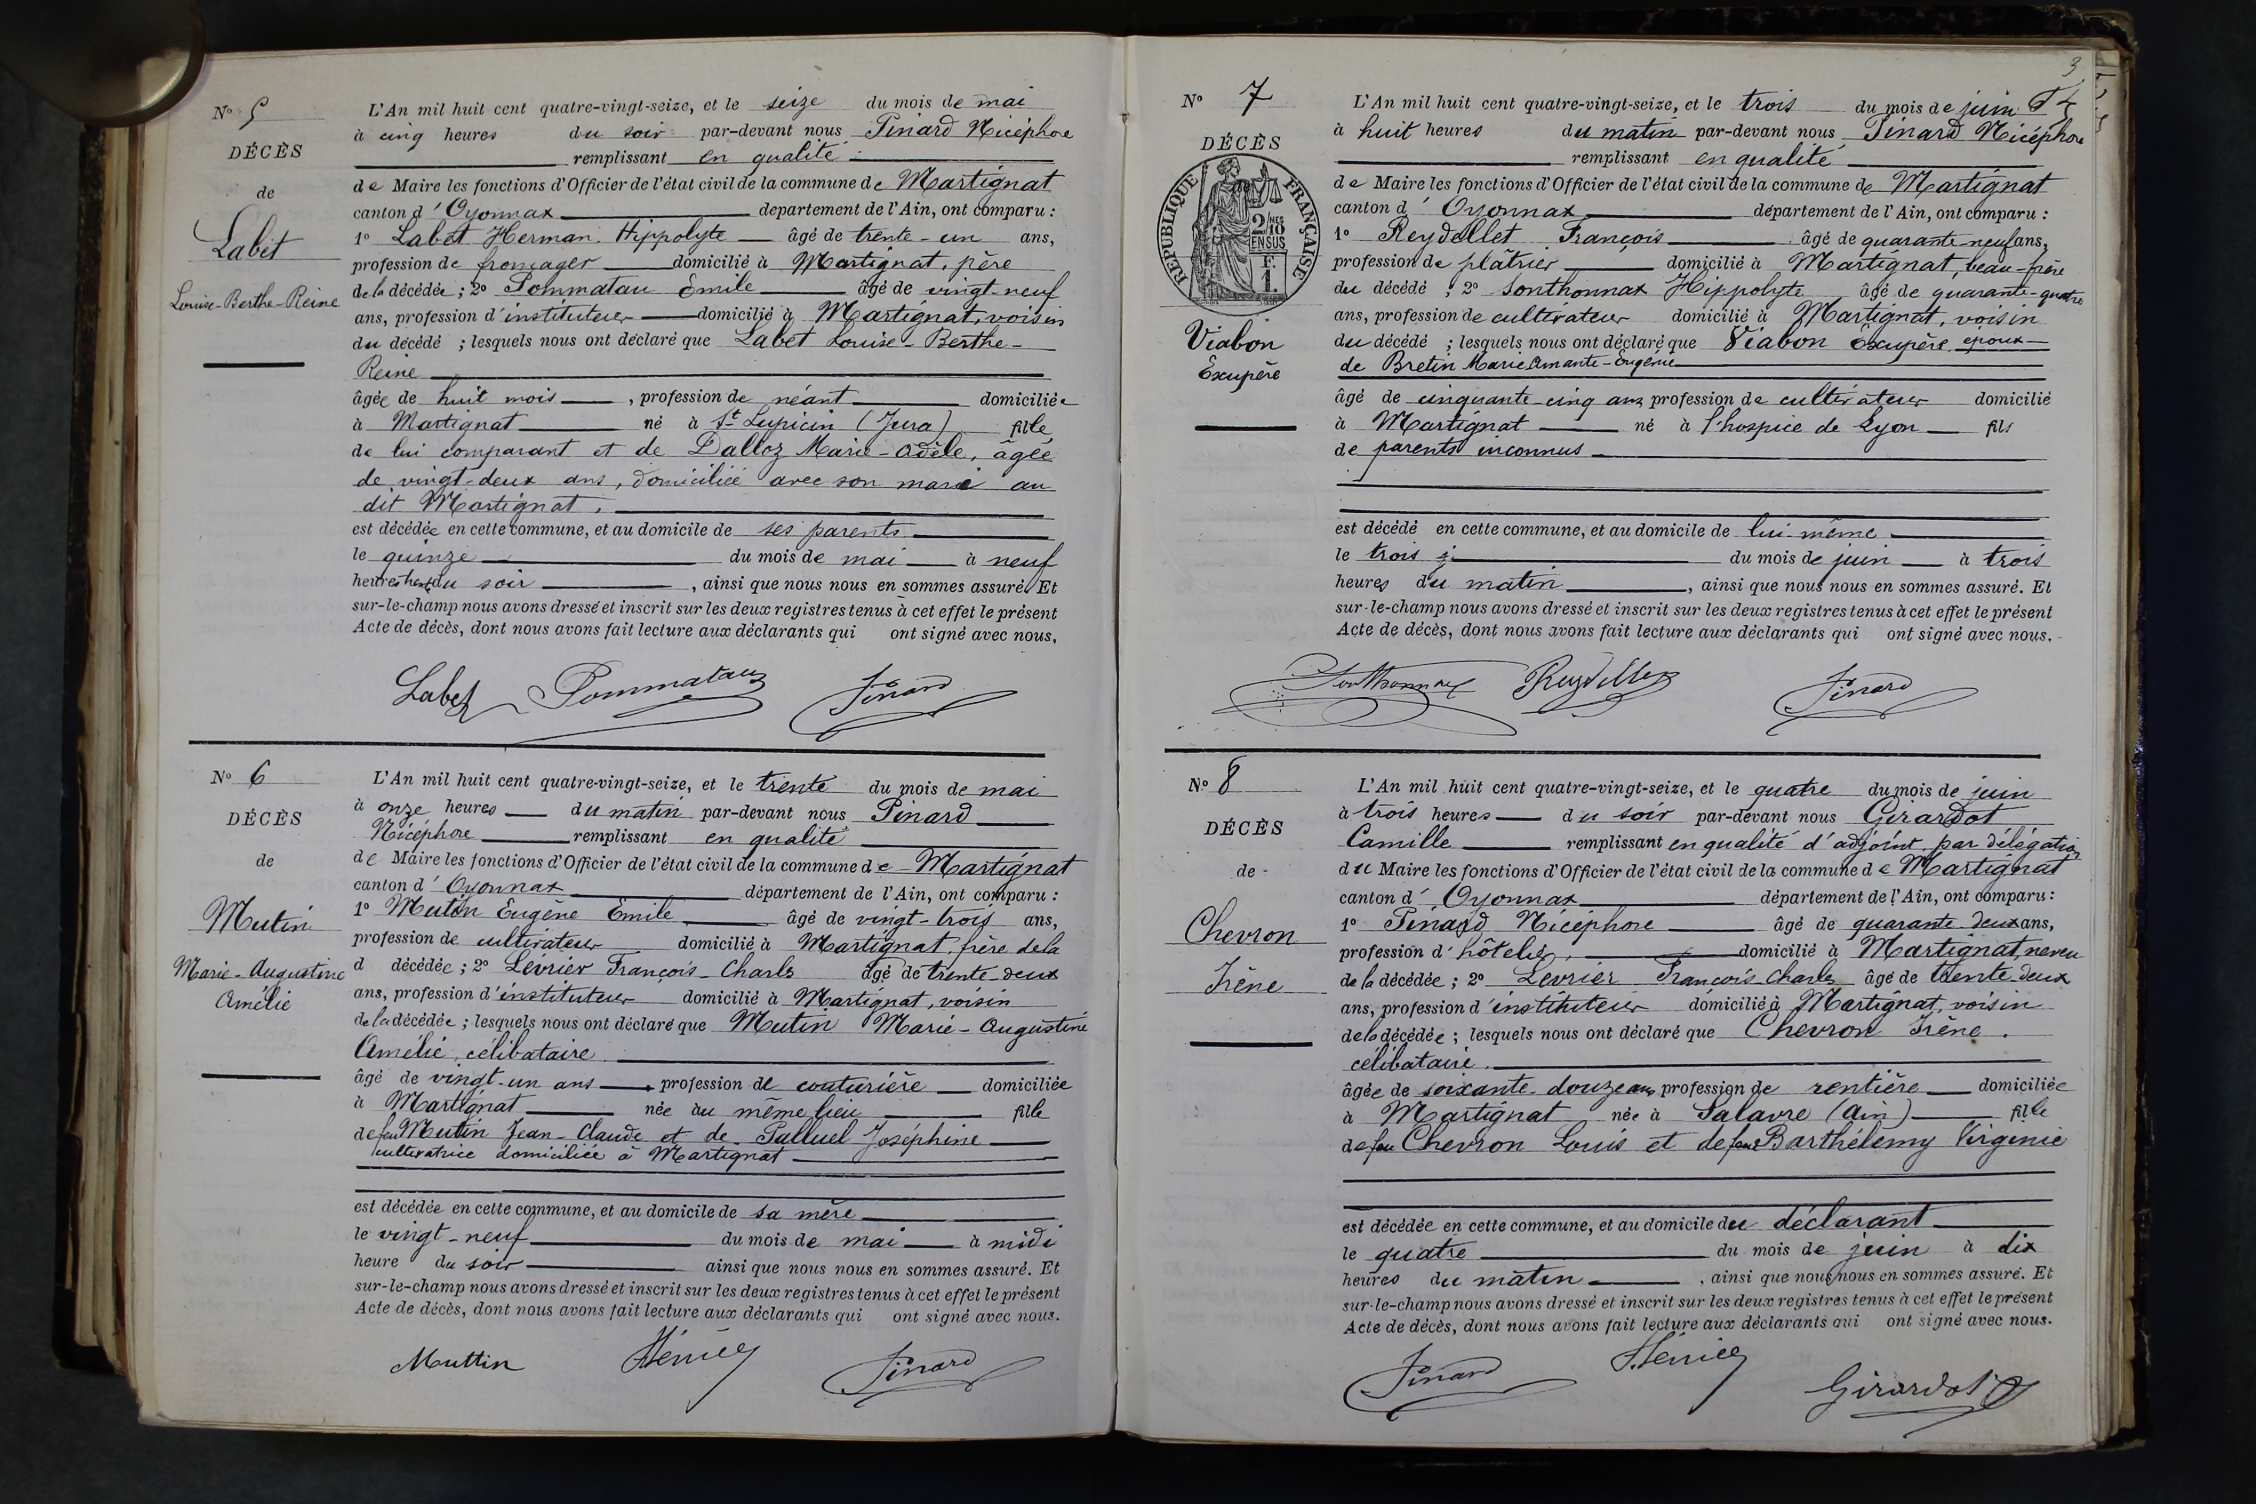 N° 5
DÉCÈS
de
Labet
Louise-Berthe-Reine
L'An mil huit cent quatre-vingt-seize, et le seize du mois de mai
à cinq heures du soir par-devant nous Pinard Nicéphore
remplissant en qualité
de Maire les fonctions d'Officier de l'état civil de la commune de Martignat
canton d'Oyonnax département de l'Ain, ont comparu :
1° Labet Herman Hippolyte âgé de trente-un ans,
profession de fromager domicilié à Martignat, père
de la décédée ; 2° Pommatau Emile âgé de vingt neuf
ans, profession d'instituteur domicilié à Martignat, voisin
du décédé ; lesquels nous ont déclaré que Labet Louise-Berthe-
Reine
âgée de huit mois, profession de néant domiciliée
à Martignat né à St Lupicin (Jura) fille
de lui comparant et de Dalloz Marie-Adèle, âgée
de vingt-deux ans, domiciliée avec son mari au
dit Martignat.
est décédée en cette commune, et au domicile de ses parents
le quinze du mois de mai à neuf
heures du soir, ainsi que nous nous en sommes assuré. Et
sur-le-champ nous avons dressé et inscrit sur les deux registres tenus à cet effet le présent
Acte de décès, dont nous avons fait lecture aux déclarants qui ont signé avec nous.
Labet Pommatau Pinard
N° 6
DÉCÈS
de
Mutin
Marie-Augustine
Amélie
L'An mil huit cent quatre-vingt-seize, et le trente du mois de mai
à onze heures du matin par-devant nous Pinard
Nicéphore remplissant en qualité
de Maire les fonctions d'Officier de l'état civil de la commune de Martignat
canton d'Oyonnax département de l'Ain, ont comparu :
1° Mutin Eugène Emile âgé de vingt-trois ans,
profession de cultivateur domicilié à Martignat, frère de la
d décédée ; 2° Levrier François-Charles âgé de trente deux
ans, profession d'instituteur domicilié à Martignat, voisin
de la décédée ; lesquels nous ont déclaré que Mutin Marie-Augustine
Amélie, célibataire
âgé de vingt-un ans, profession de couturière domiciliée
à Martignat née au même lieu fille
de feu Mutin Jean-Claude et de Palluel Joséphine
cultivatrice domiciliée à Martignat
est décédée en cette commune, et au domicile de sa mère
le vingt-neuf du mois de mai à midi
heure du soir ainsi que nous nous en sommes assuré. Et
sur-le-champ nous avons dressé et inscrit sur les deux registres tenus à cet effet le présent
Acte de décès, dont nous avons fait lecture aux déclarants qui ont signé avec nous.
Muttin Pinard
3
N° 7
DÉCÈS
RÉPUBLIQUE FRANÇAISE
2/10 EN SUS
F. 1.
Viabon
Exupère
L'An mil huit cent quatre-vingt-seize, et le trois du mois de juin
à huit heures du matin par-devant nous Pinard Nicéphore
remplissant en qualité
de Maire les fonctions d'Officier de l'état civil de la commune de Martignat
canton d'Oyonnax département de l'Ain, ont comparu :
1° Reydellet François âgé de quarante-neuf ans,
profession de plâtrier domicilié à Martignat, beau-frère
du décédé ; 2° Sonthonnax Hippolyte âgé de quarante-quatre
ans, profession de cultivateur domicilié à Martignat, voisin
du décédé ; lesquels nous ont déclaré que Viabon Exupère, époux
de Bretin Marie Amante-Eugénie
âgé de cinquante-cinq ans profession de cultivateur domicilié
à Martignat né à l'hospice de Lyon fils
de parents inconnus
est décédé en cette commune, et au domicile de lui-même
le trois du mois de juin à trois
heures du matin, ainsi que nous nous en sommes assuré. Et
sur-le-champ nous avons dressé et inscrit sur les deux registres tenus à cet effet le présent
Acte de décès, dont nous avons fait lecture aux déclarants qui ont signé avec nous.
Sonthonnax Reydellet Pinard
N° 8
DÉCÈS
de
Chevron
Irène
L'An mil huit cent quatre-vingt-seize, et le quatre du mois de juin
à trois heures du soir par-devant nous Girardot
Camille remplissant en qualité d'adjoint par délégation
du Maire les fonctions d'Officier de l'état civil de la commune de Martignat
canton d'Oyonnax département de l'Ain, ont comparu :
1° Pinard Nicéphore âgé de quarante deux ans,
profession d'hôtelier, domicilié à Martignat, neveu
de la décédée ; 2° Levrier François-Charles âgé de trente-deux
ans, profession d'instituteur domicilié à Martignat, voisin
de la décédée ; lesquels nous ont déclaré que Chevron Irène,
célibataire
âgée de soixante-douze ans profession de rentière domiciliée
à Martignat née à Salavre (Ain) fille
de feu Chevron Louis et de feue Barthélemy Virginie
est décédée en cette commune, et au domicile du déclarant
le quatre du mois de juin à dix
heures du matin, ainsi que nous nous en sommes assuré. Et
sur-le-champ nous avons dressé et inscrit sur les deux registres tenus à cet effet le présent
Acte de décès, dont nous avons fait lecture aux déclarants qui ont signé avec nous.
Pinard Girardot